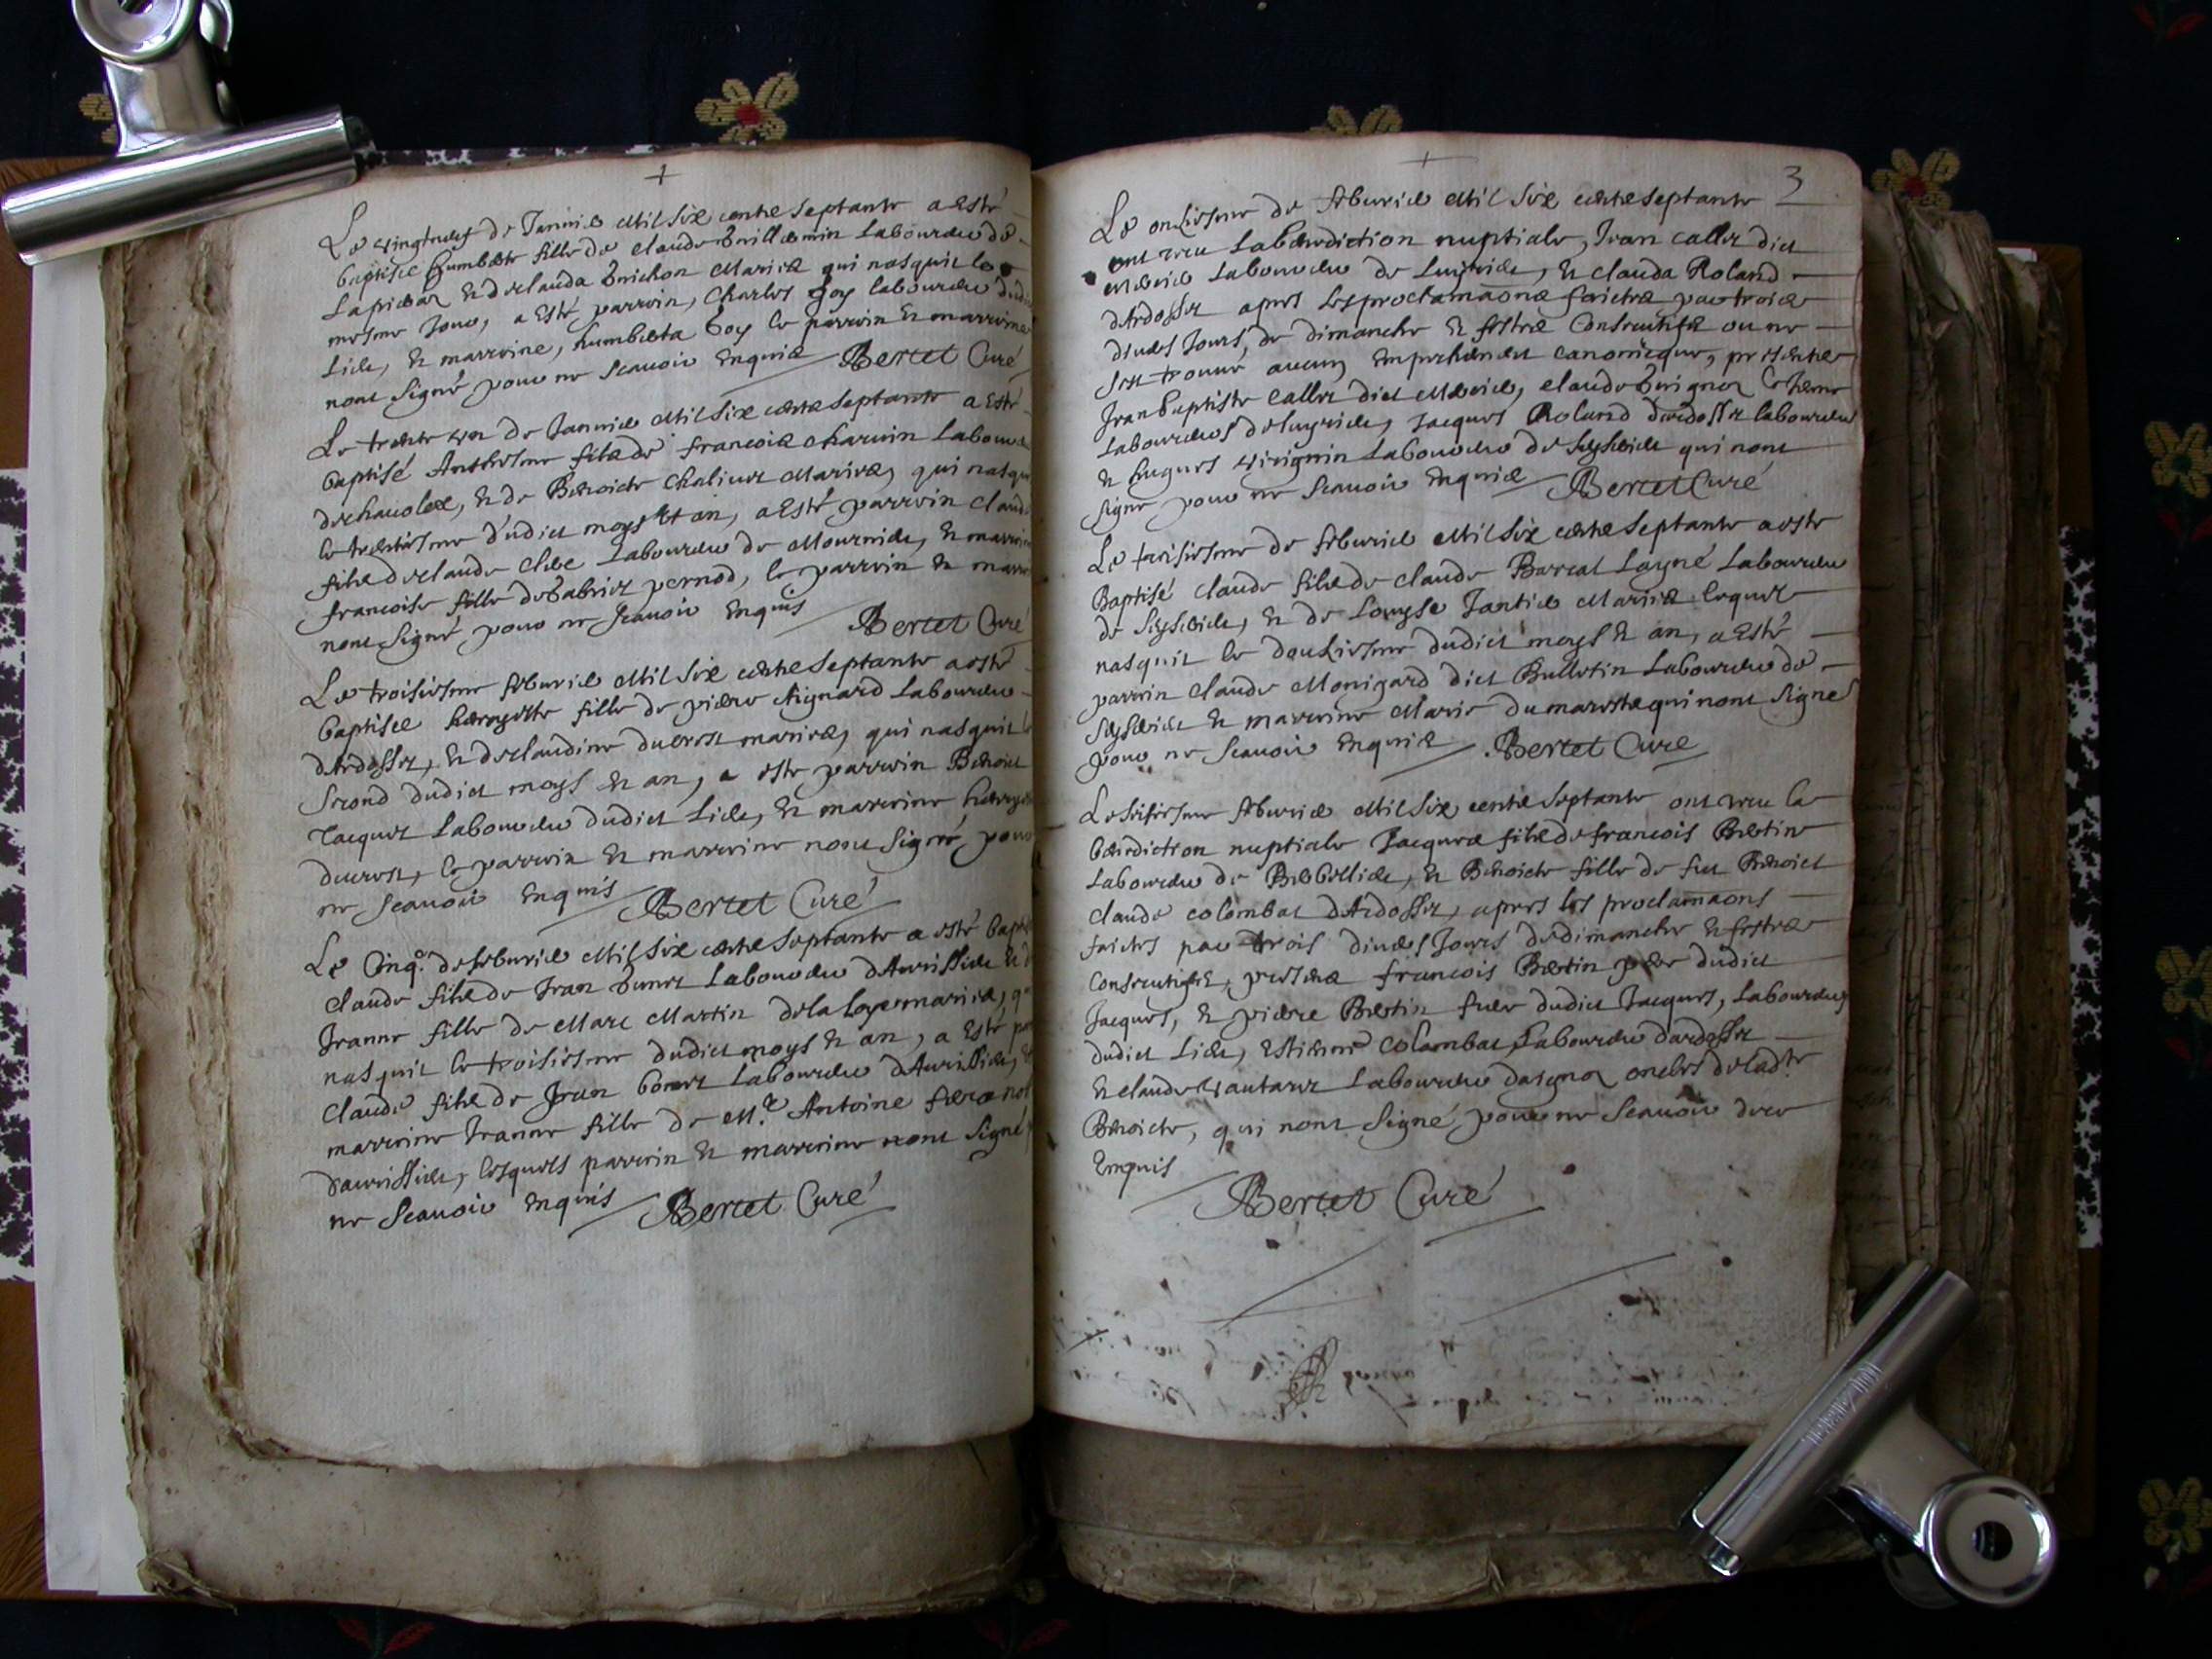 +
Le vingtneuf de Janvier Mil Six cents Septante a Esté
baptisée humberte fille de claude Guillemin Laboureur de
Lapierre & de clauda Guichon Mariés qui nasquit le
mesme Jour, a Esté parrin, Charles Goy laboureur dudi
Lieu, & marreine, humberta Goy le parrin & marreine
nont Signé pour ne Scavoir Enquis Bertet Curé
Le trente un de Janvier Mil Six cents Septante a Esté
baptisé Anthesme fils de francois charvin Labour
de chavolex, & de Benoicte Chalieur Mariés, qui nasqu
le trentiesme dudict moys & an, a Esté parrin claud
fils de claude Labourdeur de & marrein
francoise fille de Gabriez pernod, le parrin & marre
nont Signé, pour ne Scavoir Enquis Bertet Curé
Le troisiesme febvrier Mil Six cents Septante a esté
baptisée henryette fille de pierre Aignard Laboureur
dArdosset, & de claudine ducrest mariés, qui nasquit l
Second dudict moys & an, a esté parrin Benoict
Jacquet Laboureur dudict Lieu, & marreine henrye
ducrest, le parrin & marreine nont Signé, pour
ne Scavoir Enquis Bertet Curé
Le Cinq.e de febvrier Mil Six cents Septante a esté bapt
claude fils de Jean Laboureur dAvrissieu & d
Jeanne fille de Marc Martin de la Loye mariés, q
nasquit le troisiesme dudict moys & an, a Esté par
claude fils de Jean Laboureur dAvrissieu, &
marreine Jeanne fille de M.re Antoine not
davrissieu, lesquels parrin & marreine nont Signé
ne Scavoir Enquis Bertet Curé
+
3
Le onziesme de febvrier Mil Six cents Septante
ont receu La benediction nuptiale, Jean callet dict
mercier Laboureur de Luyrieu, & clauda Roland
dArdosset apres les proclamaons faictes par trois
divers Jours, de dimanche & festes Consecutifs ou ne
Sest trouvé aucun Empeschement canonicque, presents
Jean baptiste callet dict Mercier, claude le Jeune
laboureurs de luyrieu, Jacques Roland dardosset laboureur
& hugues virignin Laboureur de Seyssieu qui nont
signé pour ne Scavoir Enquis Bertet Curé
Le troisiesme de febvrier Mil Six cents Septante a esté
Baptisé claude fils de claude Barcat Layné Laboureur
de Seyssieu, & de Louyse Jantie Mariés lequel
nasquit le deuxiesme dudict moys & an, a Esté
parrin claude Monigard dict Bulletin Laboureur de
Seyssieu & marreine Marie du marest qui nont Signé
pour ne Scavoir Enquis Bertet Curé
Le febvrier Mil Six cents Septante ont receu la
benediction nuptiale Jacques fils de francois Bertin
Laboureur de & Benoicte fille de feu Benoict
claude colombat dArdosset, apres les proclamaons
faictes par trois divers Jours de dimanche & festes
Consecutifs, presents francois Bertin pere dudict
Jacques, & pierre Bertin frere dudict Jacques, Laboureurs
dudict Lieu, Estienne Colombat Laboureur dardosset
& claude vautaret Laboureur oncles de lad.te
Benoicte, qui nont Signé, pour ne Scavoir de ce
Enquis
Bertet Curé